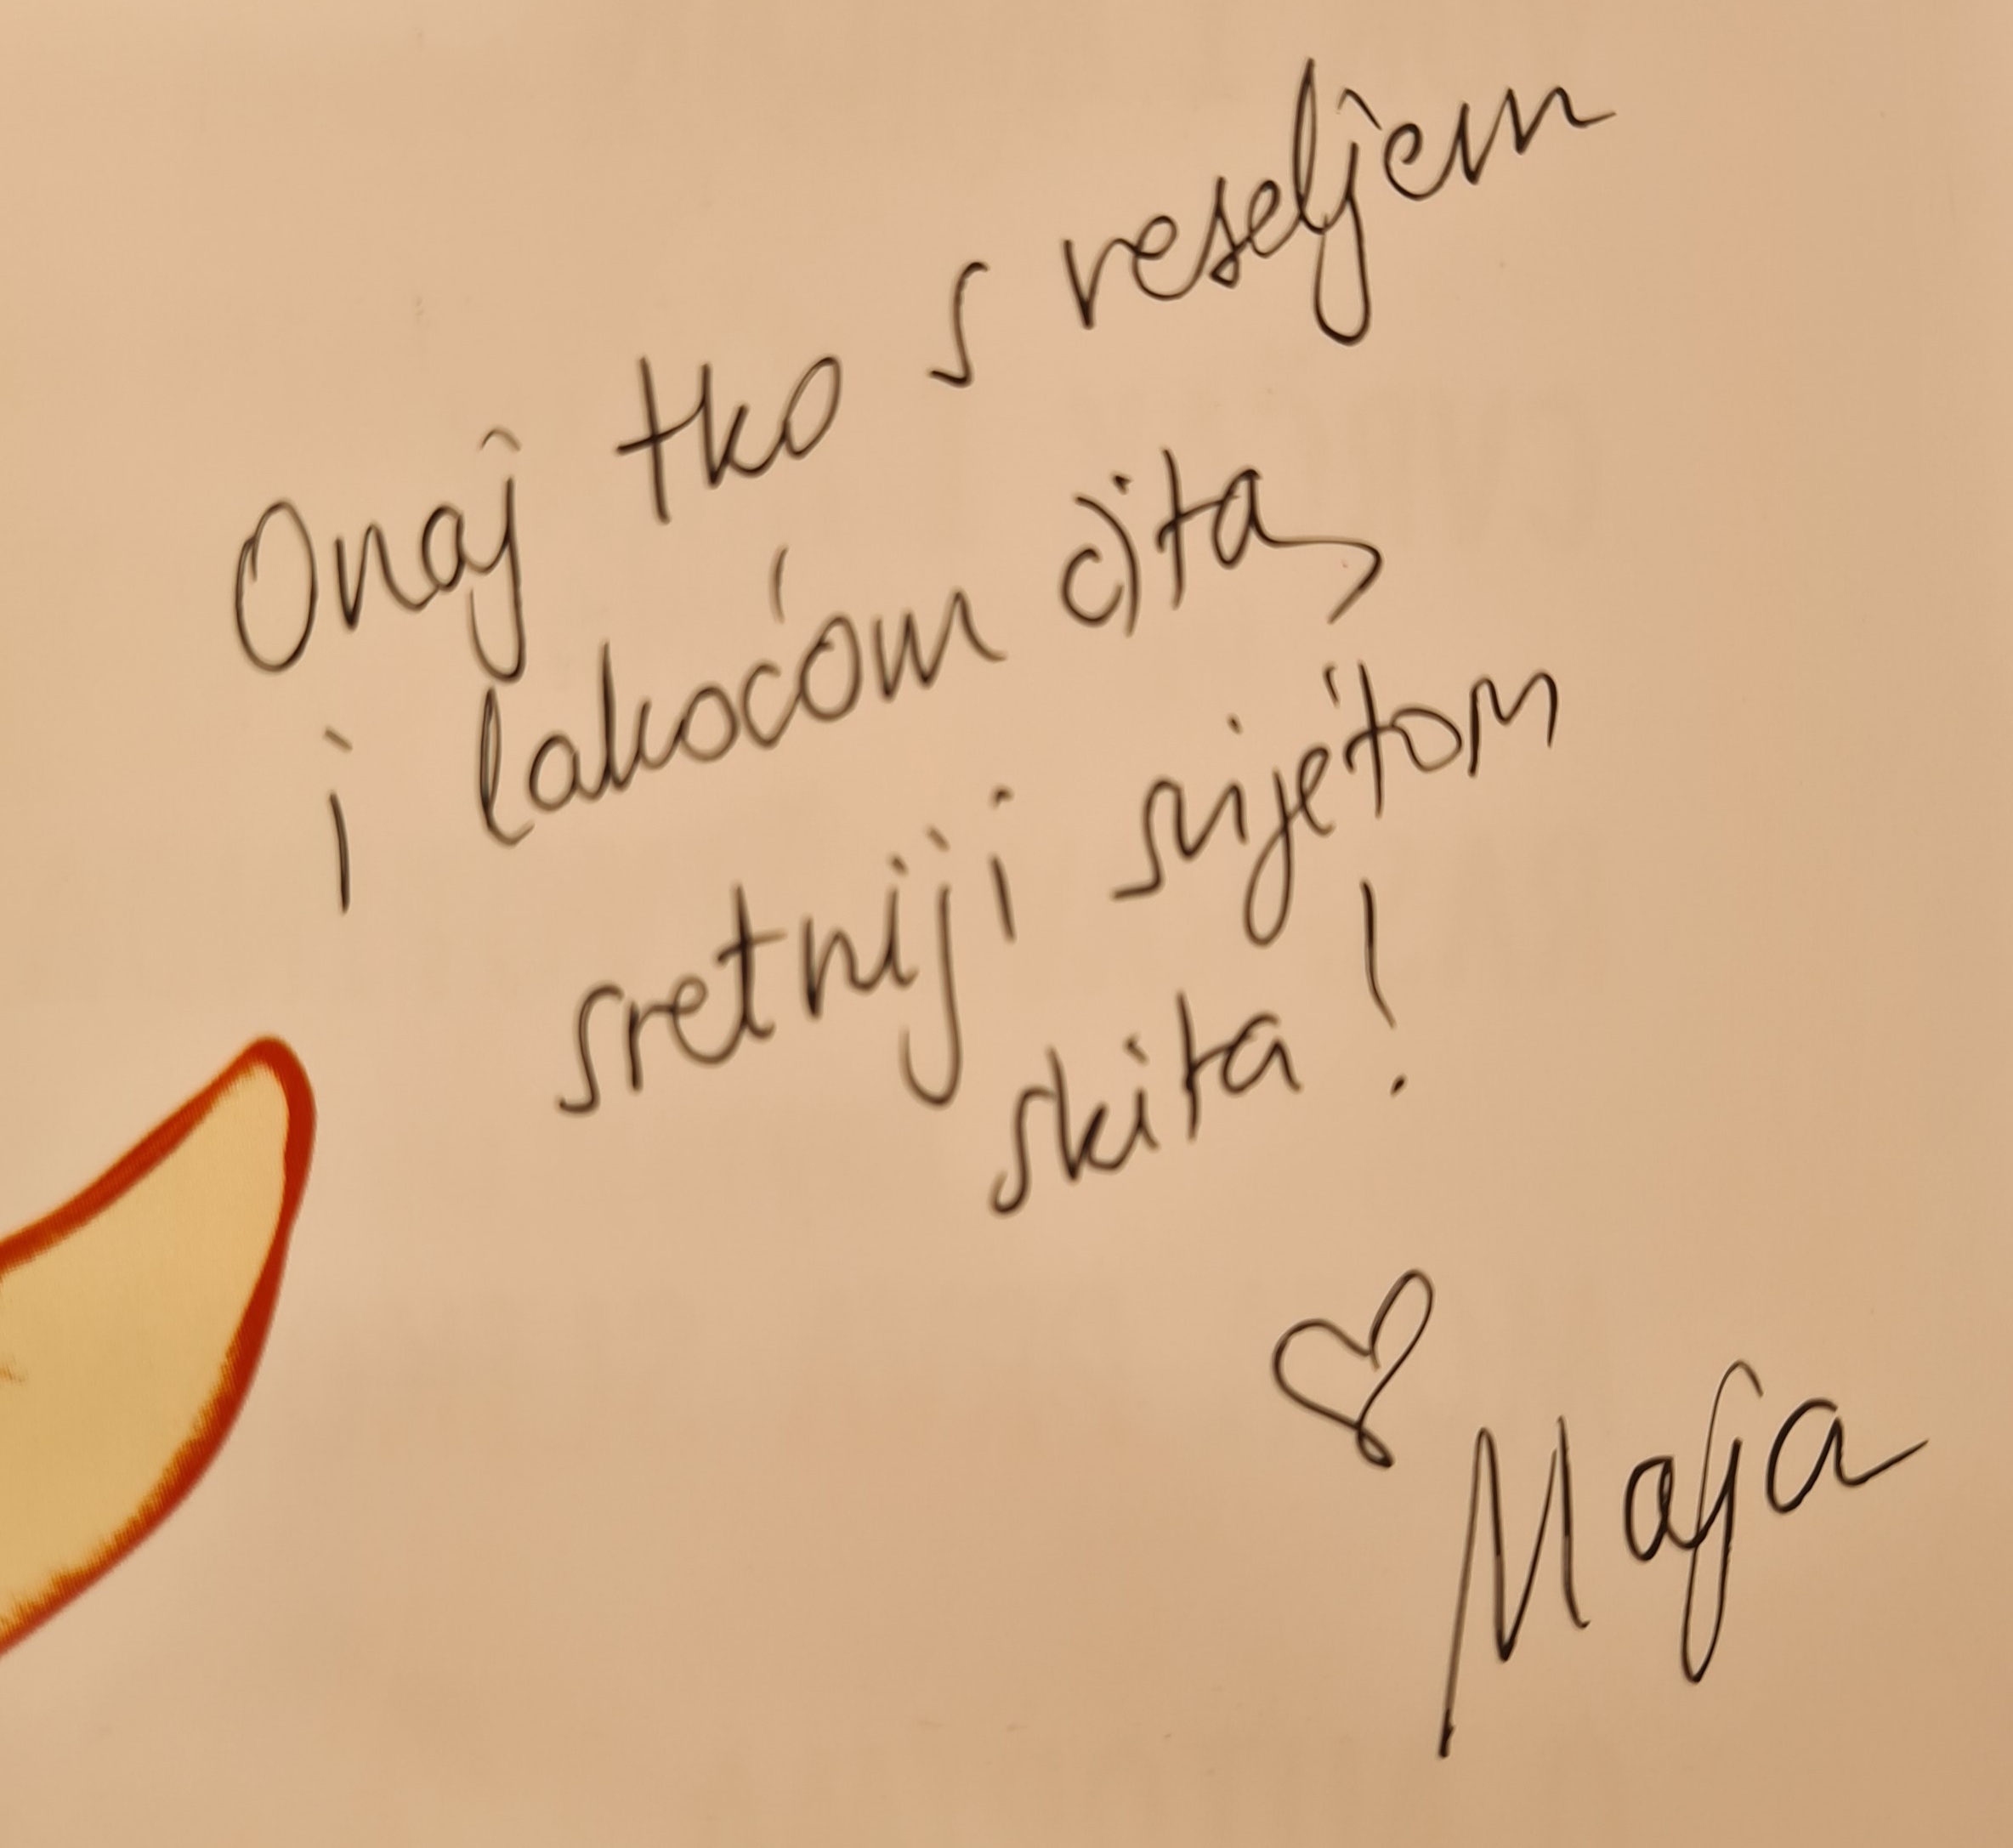 Onaj tko s veseljem
i lakoćom čita,
sretniji svijetom
skita!
Maja